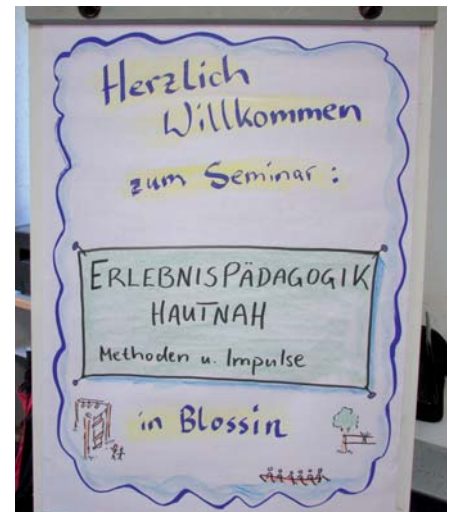 Herzlich
Willkommen
zum Seminar:
ERLEBNISPÄDAGOGIK
HAUTNAH
Methoden u. Impulse
in Blossin